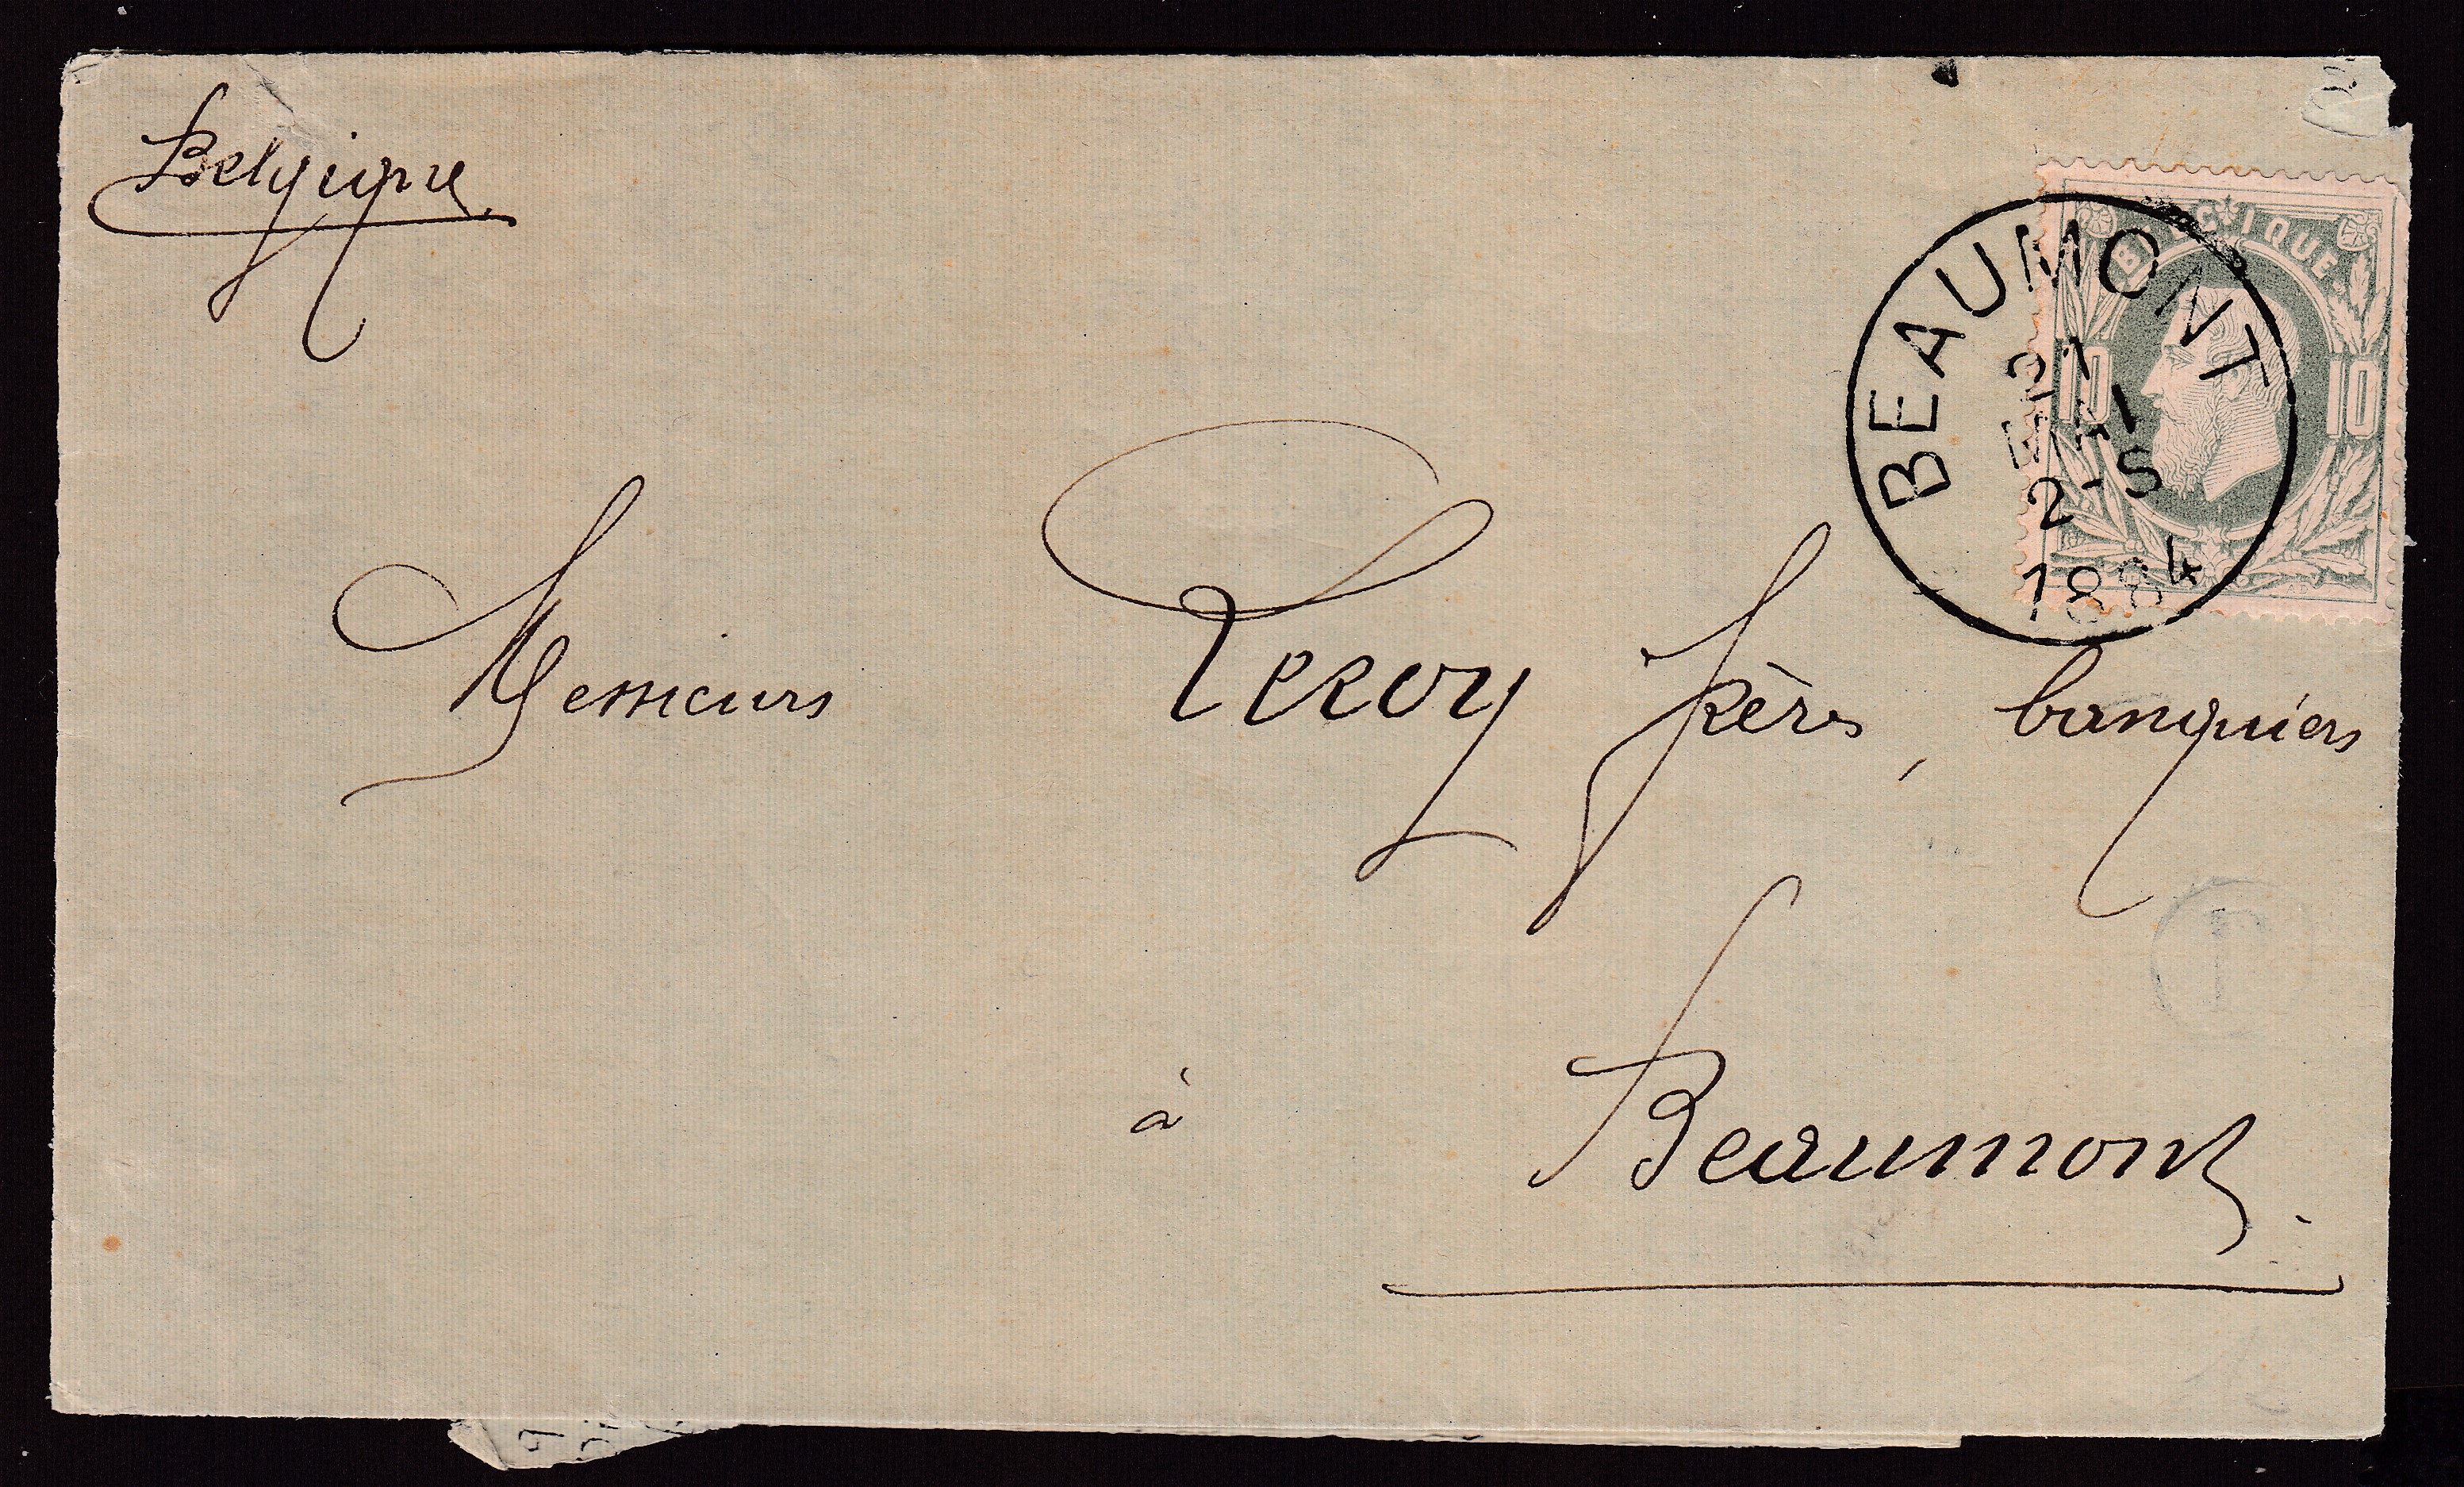 Belgique
BELGIQUE
10 10
BEAUMONT
21
2-S
1884
Messieurs Leroy frères, banquiers
à Beaumont.